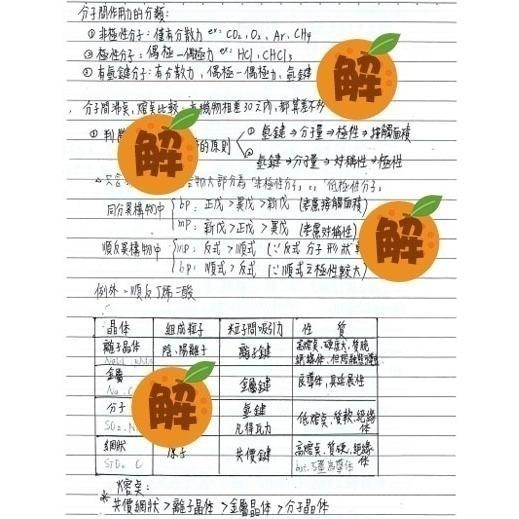 分子間作用力的分類:
① 非極性分子: 僅有分散力 ex: CO₂, O₂, Ar, CH₄
② 極性分子: 偶極一偶極力 ex: HCl, CHCl₃
③ 有氫鍵分子: 有分散力, 偶極一偶極力, 氫鍵
解
分子間沸點、熔點比較: 有機物相差30以內, 都算差不多
① 判 的原則 ① 氫鍵→分子量→極性→接觸面積
② 氫鍵→分子量→對稱性→極性
解
物大部分為「非極性分子」or「低極性分子」
同分異構物中 bp: 正戊>異戊>新戊 (考慮接觸面積)
mp: 新戊>正戊>異戊 (考慮對稱性)
解
順反異構物中 mp: 反式>順式 (∵反式分子形狀
bp: 順式>反式 (∵順式之極性較大)
例外: 順反丁烯二酸
晶体 組成粒子 粒子間吸引力 性質
離子晶体 陰、陽離子 離子鍵 高熔點、硬度大、質脆
金屬 金屬鍵 良導体、具延展性
分子 氫鍵 凡得瓦力 低熔點、質軟、絕緣体
SO₂, N
解
網狀 原子 共價鍵 高熔點、質硬、絕緣体
SiO₂ C
熔點:
※ 共價網狀 > 離子晶体 > 金屬晶体 > 分子晶体